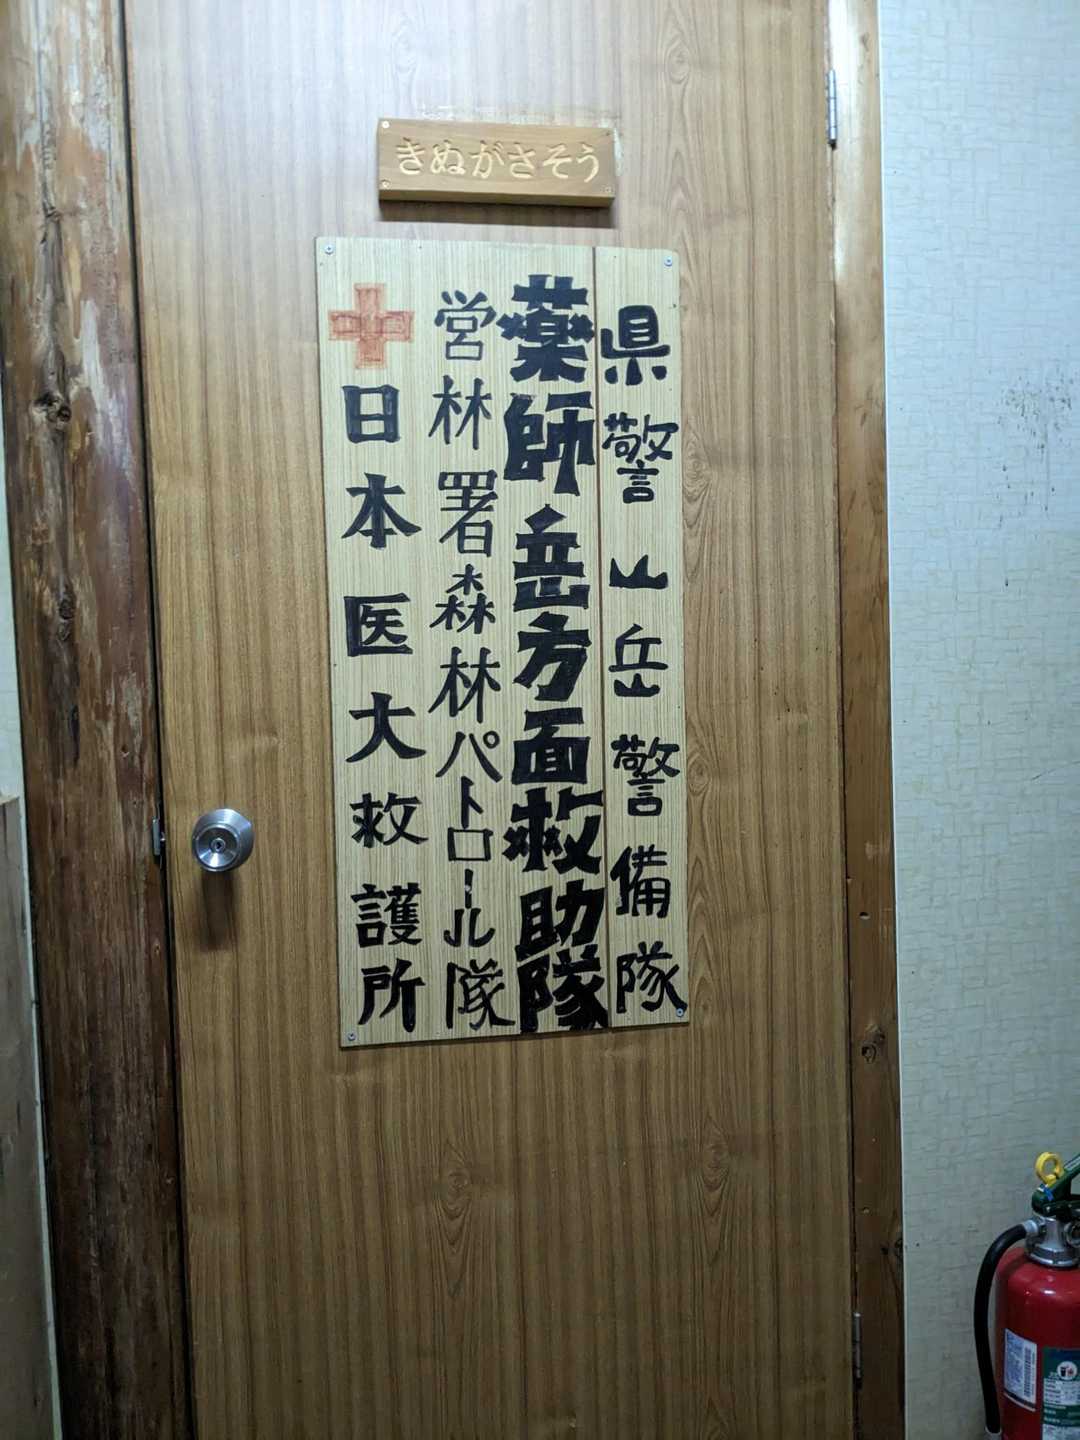 きぬがさそう
県警山岳警備隊
薬師岳方面救助隊
営林署森林パトロール隊
日本医大救護所